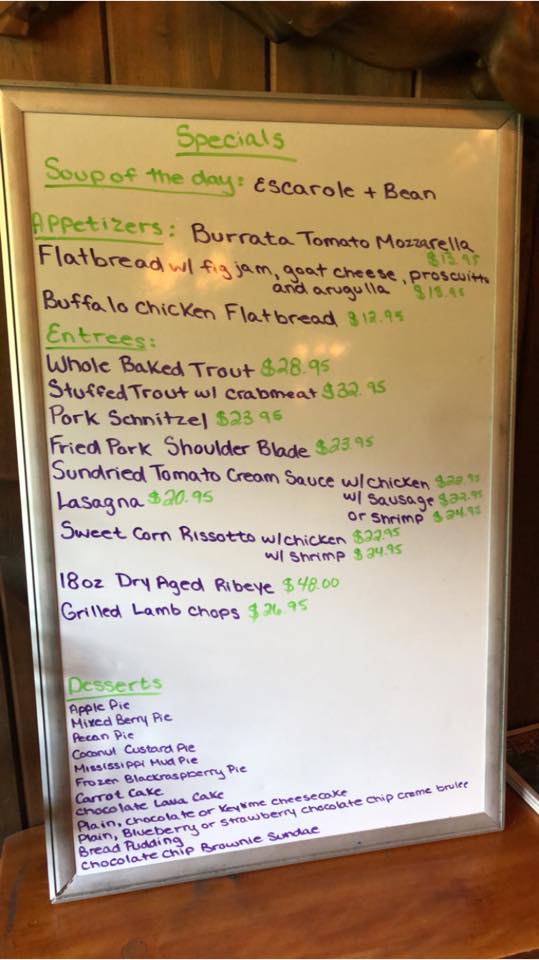 Specials
Soup of the day: Escarole + Bean
Appetizers: Burrata Tomato Mozzarella
$13.95
Flatbread w/ fig jam, goat cheese, proscuitto
and arugulla $13.95
Buffalo Chicken Flatbread $12.95
Entrees:
Whole Baked Trout $28.95
Stuffed Trout w/ crabmeat $32.95
Pork Schnitzel $23.95
Fried Pork Shoulder Blade $23.95
Sundried Tomato Cream Sauce w/chicken $22.95
Lasagna $20.95 w/ Sausage $22.95
or Shrimp $24.95
Sweet Corn Rissotto w/chicken $22.95
w/ Shrimp $24.95
18oz Dry Aged Ribeye $48.00
Grilled Lamb Chops $26.95
Desserts
Apple Pie
Mixed Berry Pie
Pecan Pie
Coconut Custard Pie
Mississippi Mud Pie
Frozen Blackraspberry Pie
Carrot Cake
Chocolate Lava Cake
Plain, chocolate or Keylime cheesecake
Plain, Blueberry or Strawberry chocolate chip creme brulee
Bread Pudding
Chocolate Chip Brownie Sundae